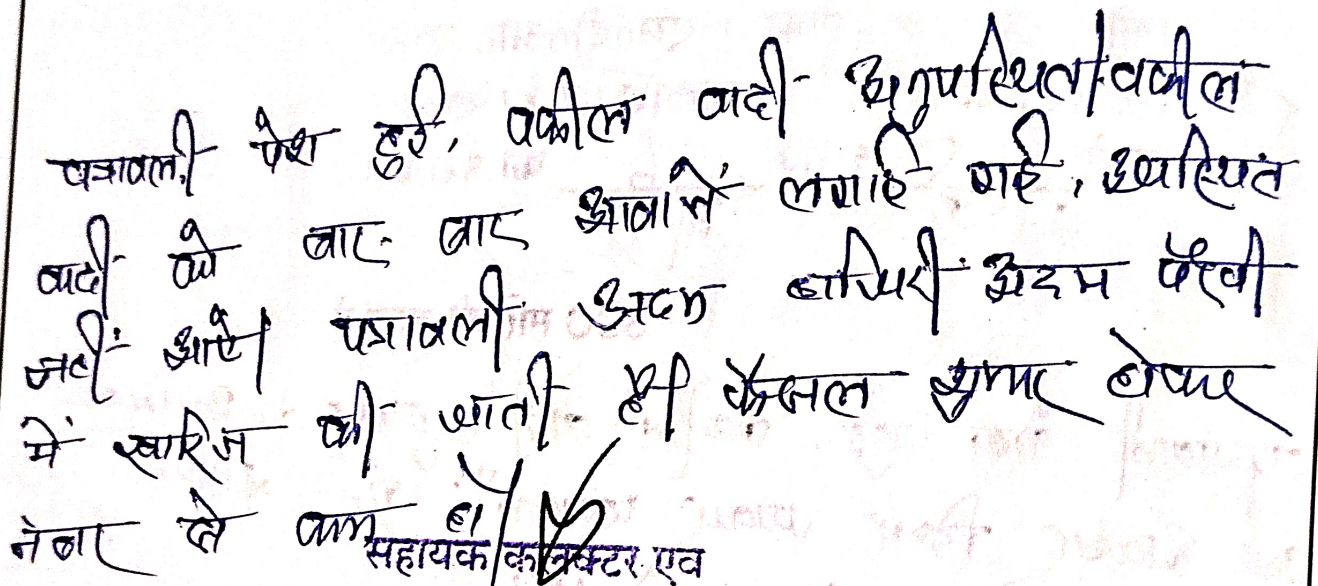 पत्रावली पेश हुई, वकील वादी अनुपस्थित। वकील
वादी को बार-बार आवाजें लगाई गई, उपस्थित
नहीं आऐ। पत्रावली अदम हाजिरी अदम पैरवी
में खारिज की जाती है। फैसल शुमार होकर
नंबर से कम हो।
सहायक कलक्टर एव